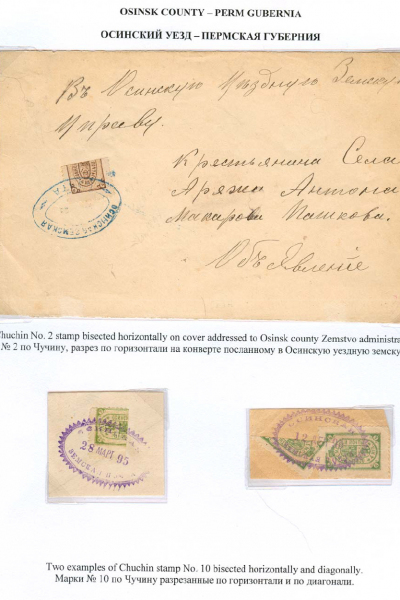 OSINSK COUNTY – PERM GUBERNIA
ОСИНСКИЙ УЕЗД – ПЕРМСКАЯ ГУБЕРНИЯ
Въ Осинскую Уѣздную Земску
Управу.
Крестьянина Села
Аряжа Антона
Макарова Пашкова.
Объявленіе
ОСИНСКАЯ ЗЕМСКАЯ
Chuchin No. 2 stamp bisected horizontally on cover addressed to Osinsk county Zemstvo administra
№ 2 по Чучину, разрез по горизонтали на конверте посланному в Осинскую уездную земску
28 МАР 95
12
Two examples of Chuchin stamp No. 10 bisected horizontally and diagonally.
Марки № 10 по Чучину разрезанные по горизонтали и по диагонали.